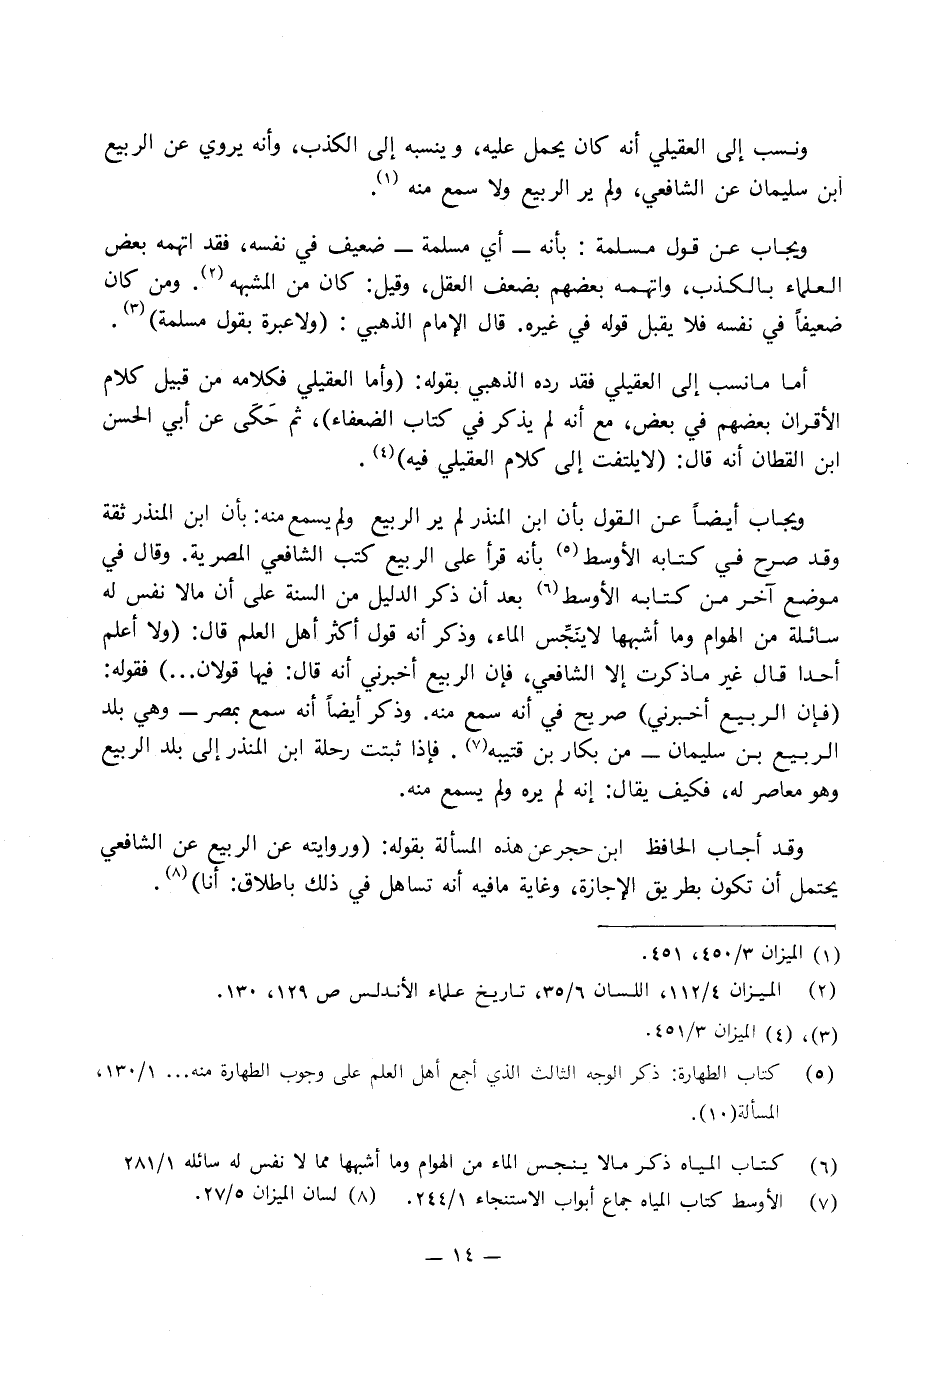 ونسب إلى العقيلي أنه كان يحمل عليه، وينسبه إلى الكذب، وأنه يروي عن الربيع
ابن سليمان عن الشافعي، ولم ير الربيع ولا سمع منه (١).
ويجاب عن قول مسلمة : بأنه ــ أي مسلمة ــ ضعيف في نفسه، فقد اتهمه بعض
العلماء بالكذب، واتهمه بعضهم بضعف العقل، وقيل: كان من المشبهه (٢). ومن كان
ضعيفاً في نفسه فلا يقبل قوله في غيره. قال الإمام الذهبي : (ولاعبرة بقول مسلمة)(٣).
أما مانسب إلى العقيلي فقد رده الذهبي بقوله: (وأما العقيلي فكلامه من قبيل كلام
الأقران بعضهم في بعض، مع أنه لم يذكر في كتاب الضعفاء)، ثم حَكَى عن أبي الحسن
ابن القطان أنه قال: (لايلتفت إلى كلام العقيلي فيه)(٤).
ويجاب أيضاً عن القول بأن ابن المنذر لم ير الربيع ولم يسمع منه: بأن ابن المنذر ثقة
وقد صرح في كتابه الأوسط(٥) بأنه قرأ على الربيع كتب الشافعي المصرية. وقال في
موضع آخر من كتابه الأوسط(٦) بعد أن ذكر الدليل من السنة على أن مالا نفس له
سائلة من الهوام وما أشبهها لاينَجِّس الماء، وذكر أنه قول أكثر أهل العلم قال: (ولا أعلم
أحدا قال غير ماذكرت إلا الشافعي، فإن الربيع أخبرني أنه قال: فيها قولان...) فقوله:
(فإن الربيع أخبرني) صريح في أنه سمع منه. وذكر أيضاً أنه سمع بمصر ــ وهي بلد
الربيع بن سليمان ــ من بكار بن قتيبه(٧). فإذا ثبتت رحلة ابن المنذر إلى بلد الربيع
وهو معاصر له، فكيف يقال: إنه لم يره ولم يسمع منه.
وقد أجاب الحافظ ابن حجر عن هذه المسألة بقوله: (وروايته عن الربيع عن الشافعي
يحتمل أن تكون بطريق الإجازة، وغاية مافيه أنه تساهل في ذلك باطلاق: أنا)(٨).
(١) الميزان ٤٥٠/٣، ٤٥١.
(٢) الميزان ١١٢/٤، اللسان ٣٥/٦، تاريخ علماء الأندلس ص ١٢٩، ١٣٠.
(٣)، (٤) الميزان ٤٥١/٣.
(٥) كتاب الطهارة: ذكر الوجه الثالث الذي أجمع أهل العلم على وجوب الطهارة منه... ١٣٠/١،
المسألة(١٠).
(٦) كتاب المياه ذكر مالا ينجس الماء من الهوام وما أشبهها مما لا نفس له سائله ٢٨١/١
(٧) الأوسط كتاب المياه جماع أبواب الاستنجاء ٢٤٤/١. (٨) لسان الميزان ٢٧/٥.
ــ ١٤ ــ